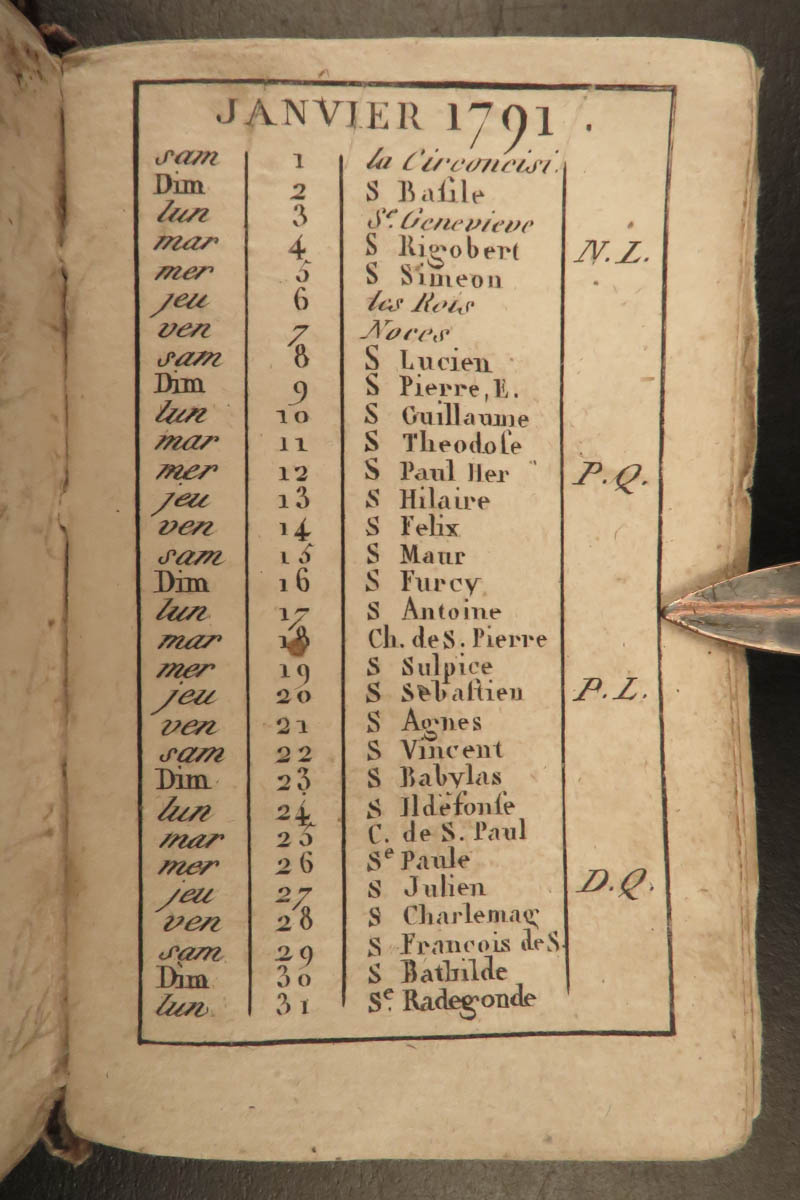 JANVIER 1791.
sam 1 la Circoncisi.
Dim 2 S Baſile
lun 3 Sᵉ. Genevieve
mar 4 S Rigobert N.L.
mer 5 S Simeon
jeu 6 les Rois
ven 7 Noces
sam 8 S Lucien
Dim 9 S Pierre, E.
lun 10 S Guillaume
mar 11 S Theodoſe
mer 12 S Paul Her P.Q.
jeu 13 S Hilaire
ven 14 S Felix
sam 15 S Maur
Dim 16 S Furcy
lun 17 S Antoine
mar 18 Ch. de S. Pierre
mer 19 S Sulpice
jeu 20 S Sebaſtien P.L.
ven 21 S Agnes
sam 22 S Vincent
Dim 23 S Babylas
lun 24 S Ildefonſe
mar 25 C. de S. Paul
mer 26 Sᵉ Paule
jeu 27 S Julien D.Q.
ven 28 S Charlemag
sam 29 S Francois de S.
Dim 30 S Bathilde
lun 31 Sᵉ. Radegonde